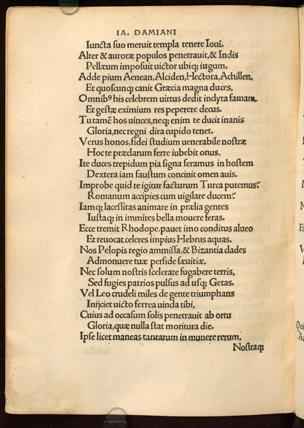 IA. DAMIANI
Iuncta suo meruit templa tenere Ioui.
Alter & auroræ populos penetrauit, & Indis
Pellæum imposuit uictor ubiq; iugum.
Adde pium Aenean, Alciden, Hectora, Achillen,
Et quoscunq; canit Græcia magna duces,
Omnibꝰ his celebrem uirtus dedit indyta famam,
Et gestæ eximium res peperere decus.
Tu tamẽ hos uinces, neq; enim te ducit inanis
Gloria, nec regni dira cupido tenet.
Verus honos, fidei studium uenerabile nostræ
Hoc te præclarum ferre iubebit onus.
Ite duces trepidum pia signa feramus in hostem
Dextera iam faustum concinit omen auis.
Improbe quid te igitur facturum Turca putemus?
Romanum accipies cum uigilare ducem?
Iamq; lacessitas animare in prælia gentes
Iustaq; in immites bella mouere feras.
Ecce tremit Rhodope, pauet imo conditus alueo
Et reuocat celeres impius Hebrus aquas.
Nos Pelopis regio amissa, & Bizantia clades
Admonuere tuæ perfide sæuitiæ.
Nec solum nostris scelerate fugabere terris,
Sed fugies patrios pulsus ad usq; Getas.
Vel Leo crudeli miles de gente triumphans
Iniiciet uicto ferrea uincla tibi,
Cuius ad occasum solis penetrauit ab ortu
Gloria, quæ nulla stat moritura die.
Ipse licet maneas tantarum in munere rerum,
Nostraq;